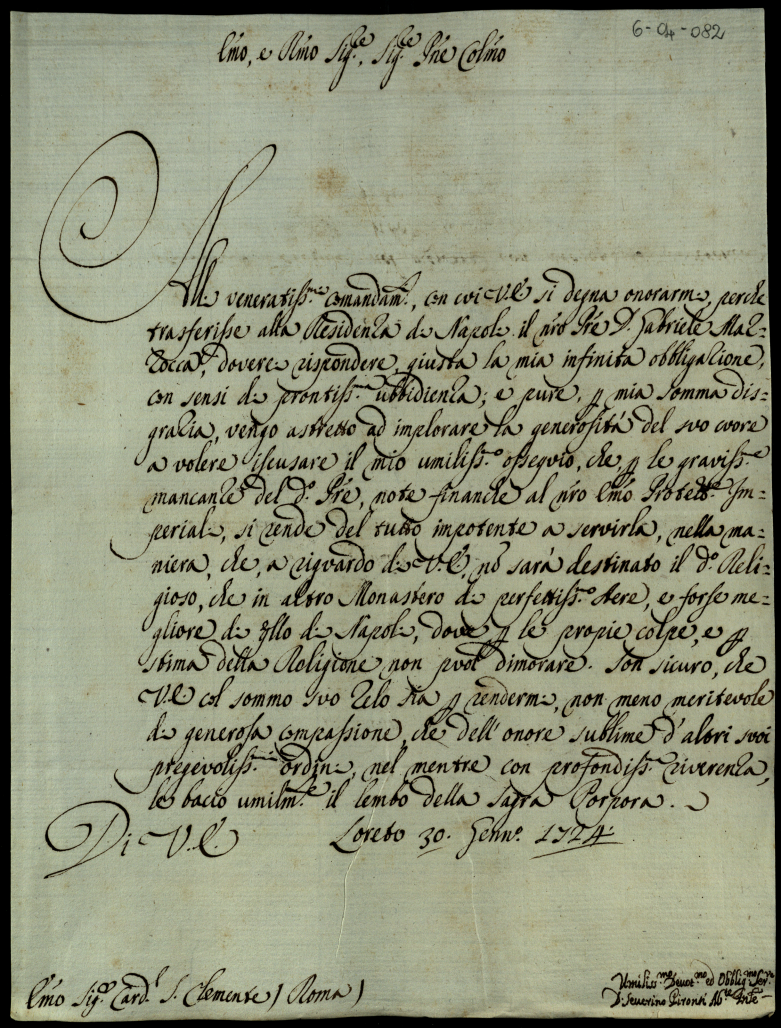 6-04-082
Emo, e Rmo Sig.re, Sig.re Pne Colmo
Alli veneratiss.mi comandam.ti, con cui V.E. si degna onorarmi, perche
trasferisse alla Residenza di Napoli il nro Pre D. Gabriele Maz=
zocca, doverei rispondere, giusta la mia infinita obbligazione,
con sensi di prontiss.ma ubbidienza; e pure, p mia somma dis=
grazia, vengo astretto ad implorare la generosità del suo cuore
a volere iscusare il mio umiliss.o ossequio, che, p le graviss.e
mancanze del d.o Pre, note finanche al nro Emo Protett.e Im=
periali, si rende del tutto impotente a servirla, nella ma=
niera, che, a riguardo di V.E., nō sarà destinato il d.o Reli=
gioso, che in altro Monastero di perfettiss.o Aere, e forse me=
gliore di qllo di Napoli, dove p le propie colpe, e p
stima della Religione non puol dimorare. Son sicuro, che
V.E. col sommo suo zelo sia p rendermi, non meno meritevole
di generosa compassione, che dell' onore sublime d' altri suoi
pregevoliss.mi ordini, nel mentre con profondiss.a riverenza,
le bacio umilm.te il lembo della Sagra Porpora.
Di V.E. Loreto 30. Genn.o 1724.
Emo Sig.e Card.l S. Clemente (Roma)
Umiliss.mo Devot.mo ed Obblig.mo Ser.e
D. Severino Pironti Ab.te